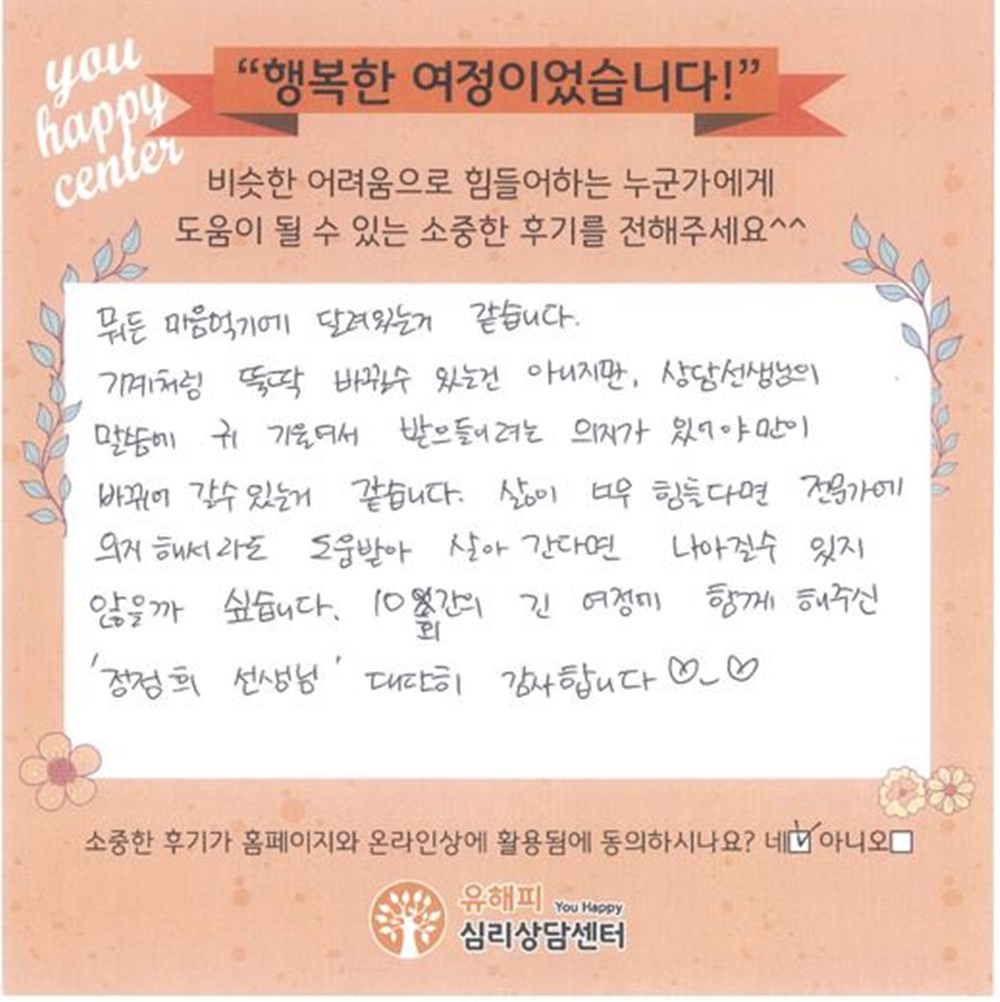 you
happy
center
“행복한 여정이었습니다!”
비슷한 어려움으로 힘들어하는 누군가에게
도움이 될 수 있는 소중한 후기를 전해주세요^^
뭐든 마음먹기에 달려있는거 같습니다.
기계처럼 뚝딱 바뀔수 있는건 아니지만, 상담선생님의
말씀에 귀 기울여서 받으들이려는 의지가 있어야만이
바뀌어 갈수있는거 같습니다. 삶이 너무 힘들다면 전문가에
의지해서라도 도움받아 살아간다면 나아질수 있지
않을까 싶습니다. 10회간의 긴 여정에 함께 해주신
'정점희 선생님' 대단히 감사합니다 ♡_♡
소중한 후기가 홈페이지와 온라인상에 활용됨에 동의하시나요? 네☑ 아니오☐
유해피 You Happy
심리상담센터